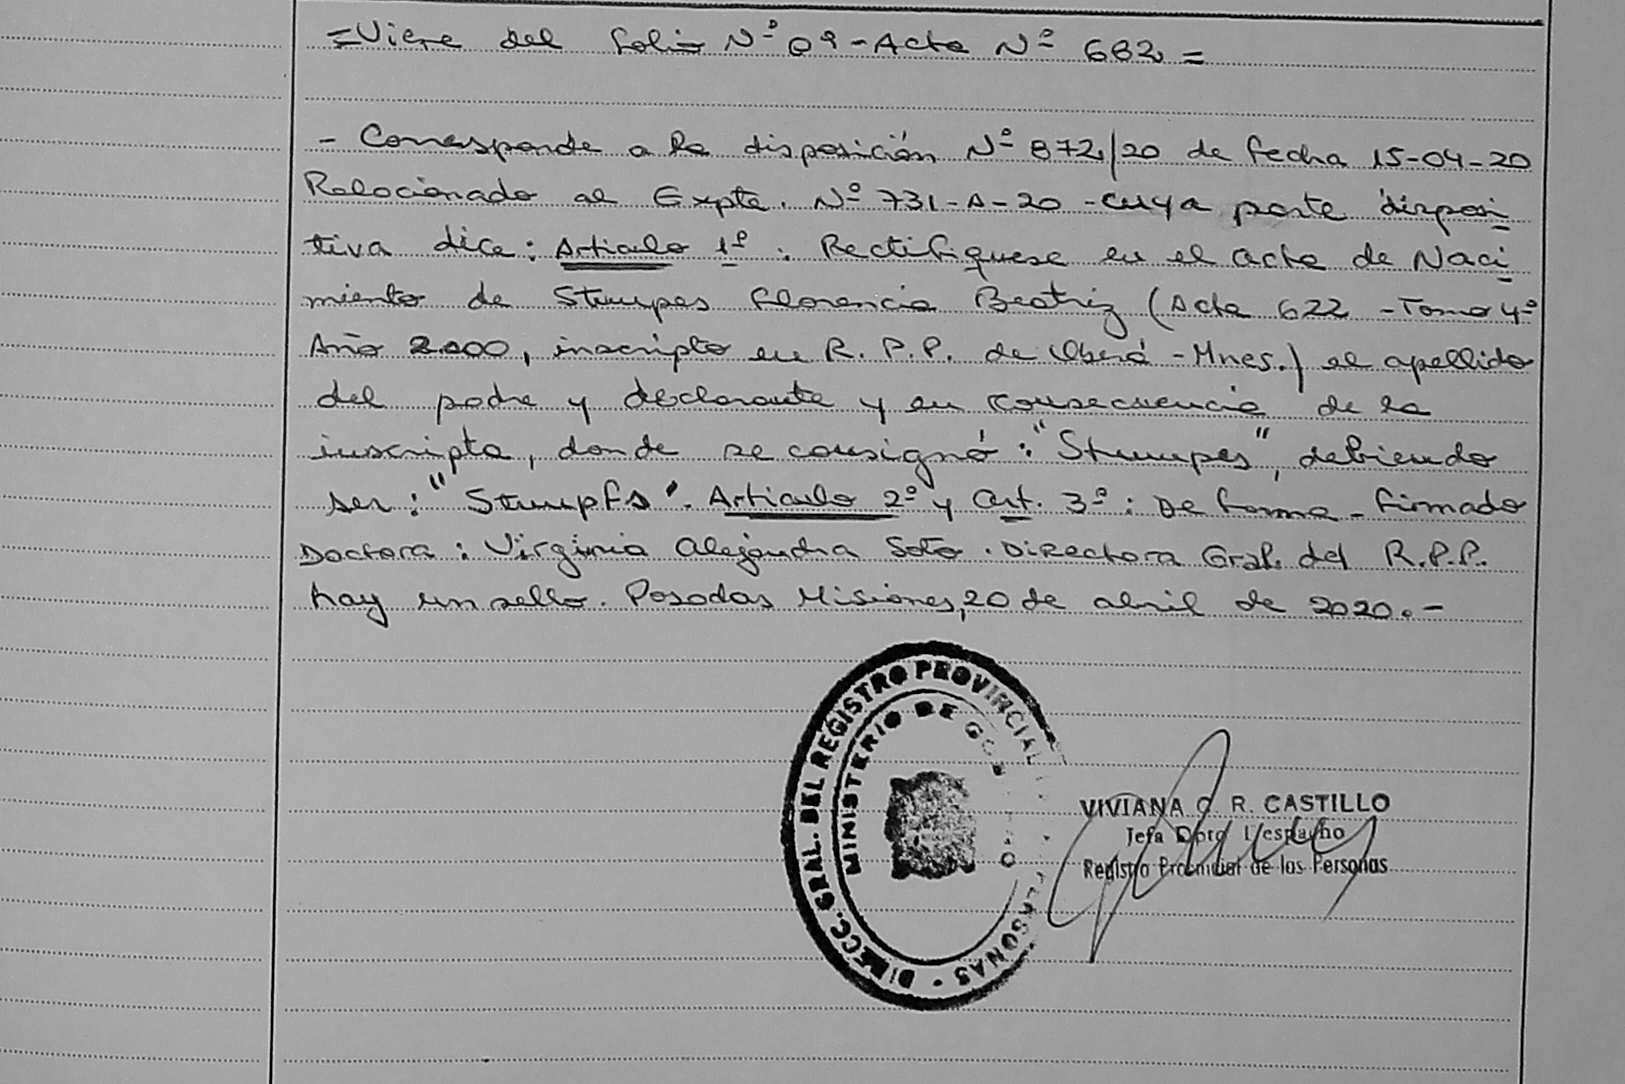 =Viene del folio Nº 09-Acta Nº 682=
- Corresponde a la disposición Nº 872/20 de fecha 15-04-20
Relacionado al Expte. Nº 731-A-20 -cuya parte disposi
tiva dice: Articulo 1º: Rectifiquese en el acta de Naci
miento de Stumpes Florencia Beatriz (Acta 622 -Tomo 4º
Año 2.000, inscripto en R.P.P. de Oberá -Mnes.) el apellido
del padre y declarante y en consecuencia de la
inscripta, donde se consignó: "Stumpes", debiendo
ser: "Stumpfs". Articulo 2º y Art. 3º: De forma - firmado
Doctora: Virginia Alejandra Soto. Directora Gral. del R.P.P.
hay un sello. Posadas Misiones, 20 de abril de 2020.-
DIRECC. GRAL. DEL REGISTRO PROVINCIAL PERSONAS
MINISTERIO DE GOBIERNO
VIVIANA C. R. CASTILLO
Jefa Dpto Despacho
Registro Provincial de las Personas